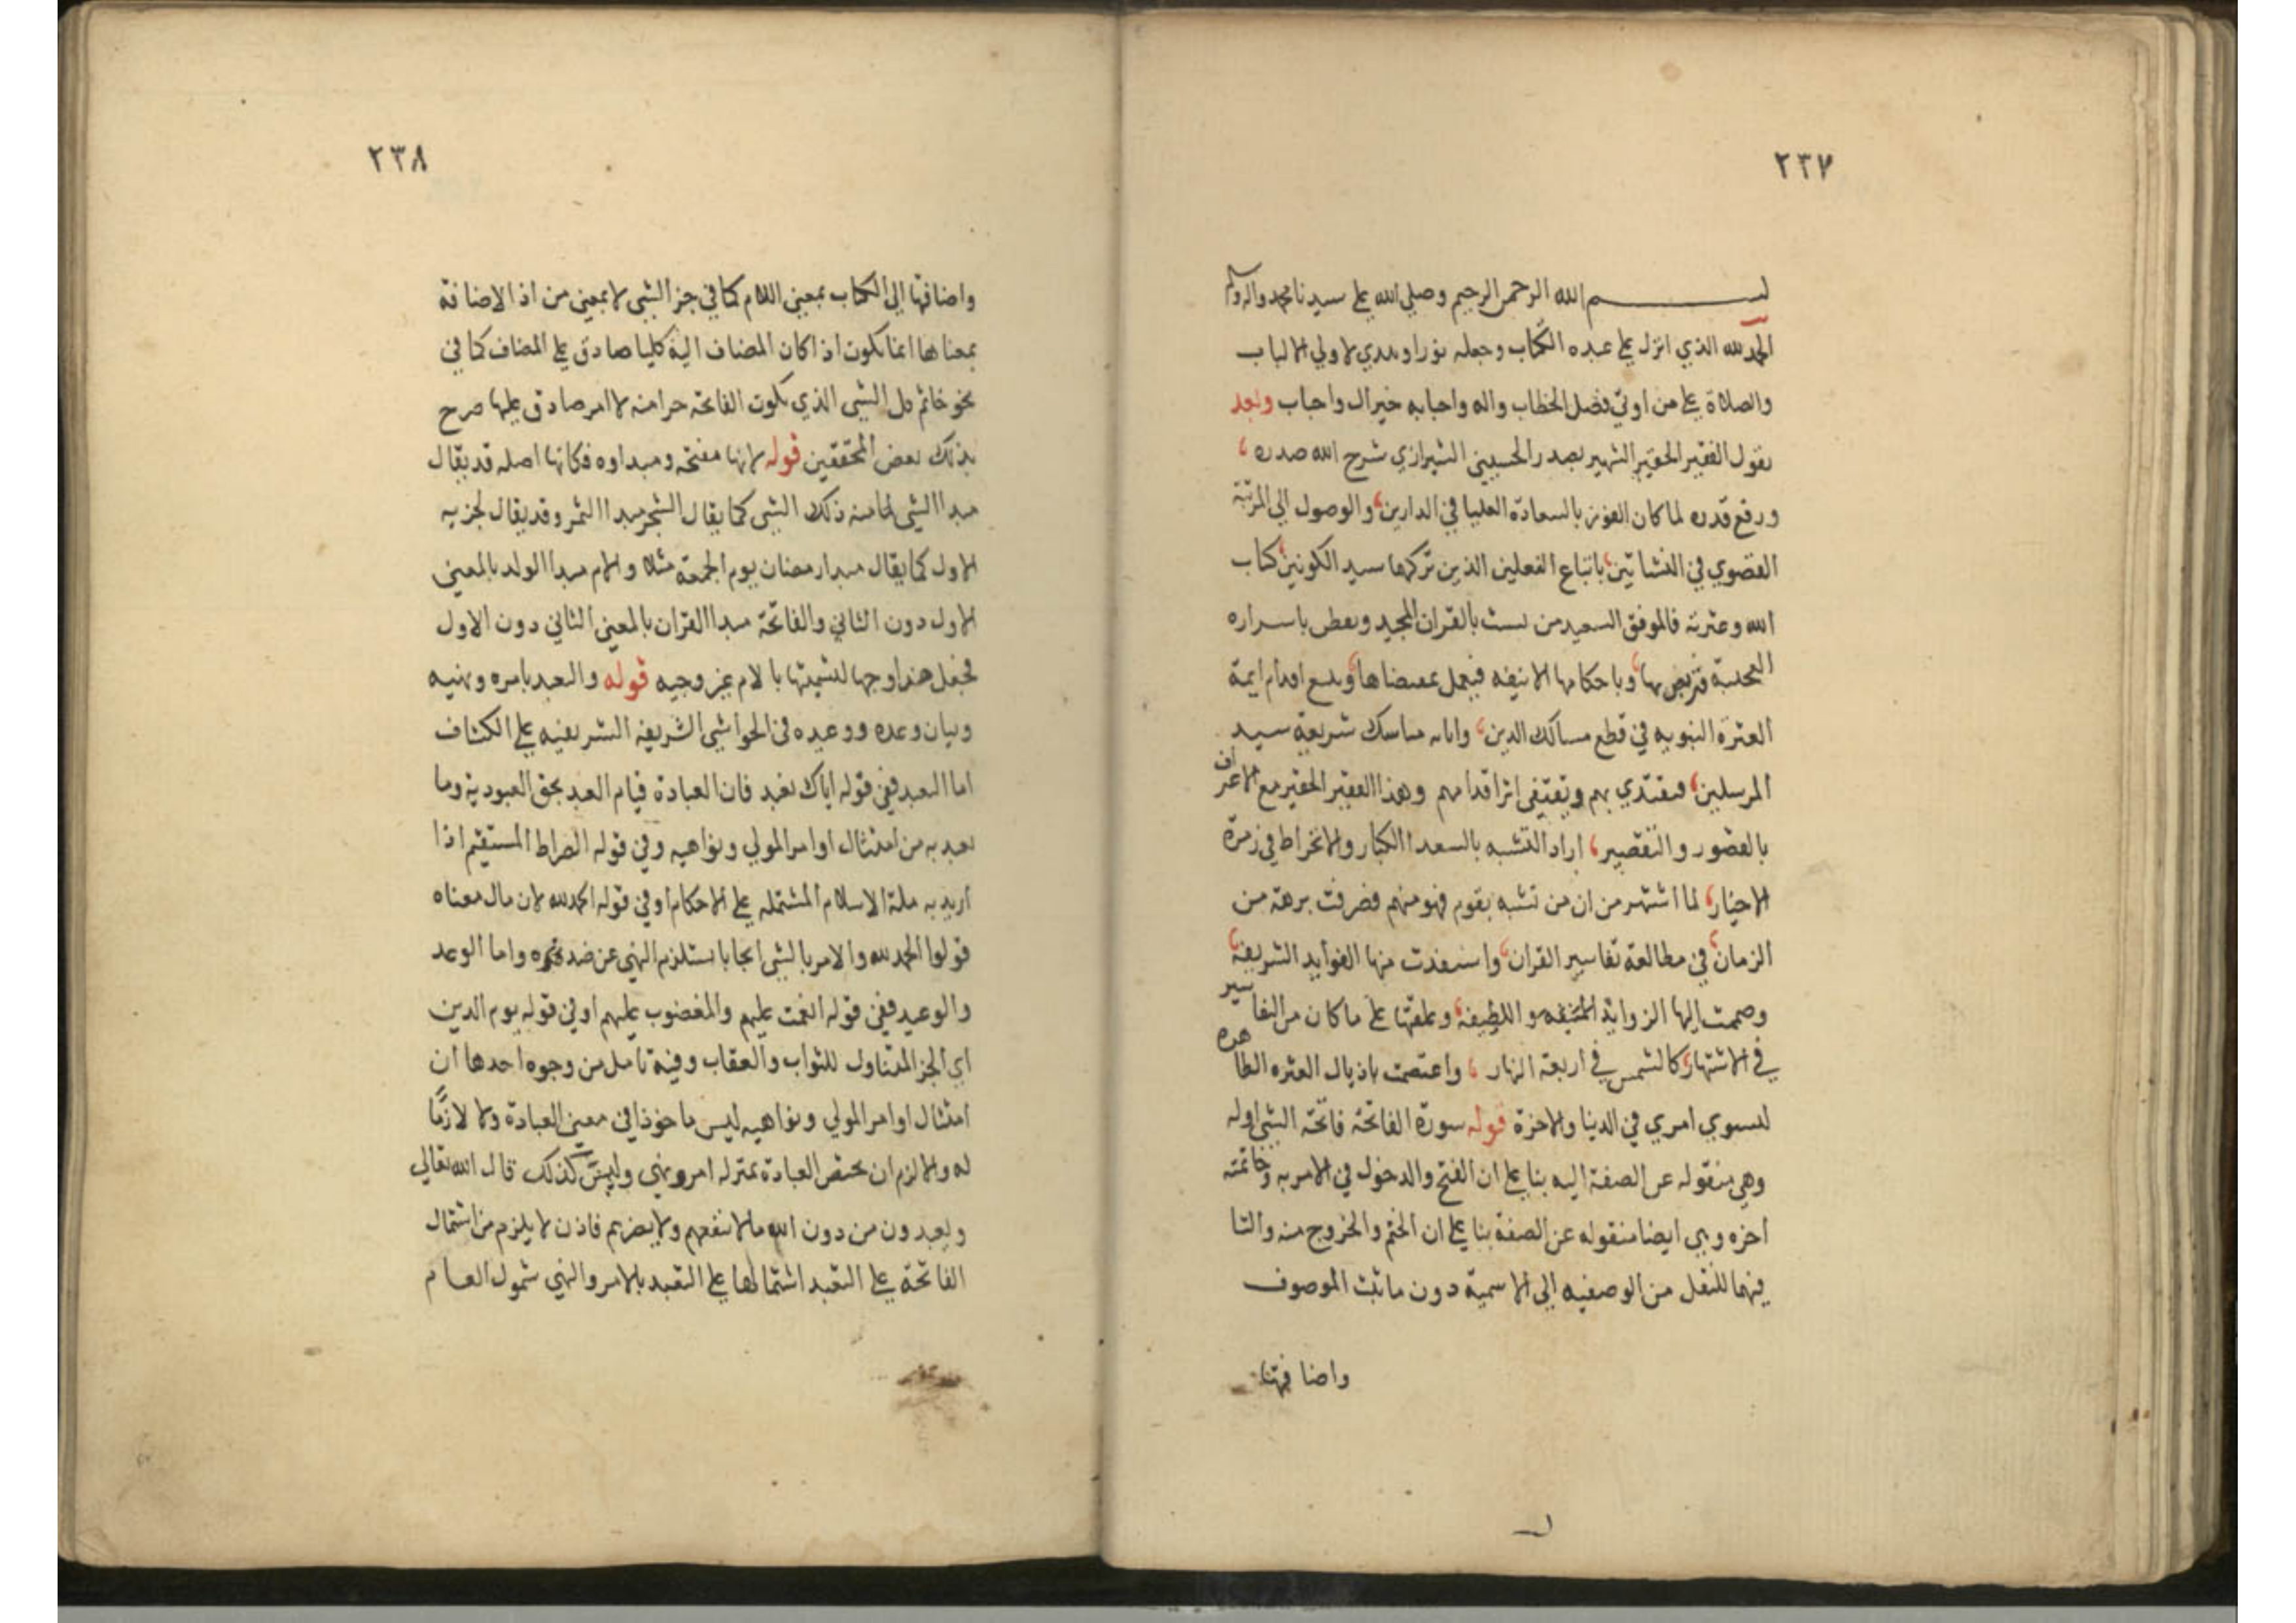 ٢٣٧
بسم الله الرحمن الرحيم وصلي الله علي سيدنا محمد واله وسلم
الحمد لله الذي انزل علي عبده الكتاب وجعله نورا وهدي لاولي الالباب
والصلاة علي من اوتي فضل الخطاب واله واحبابه خير ال واحباب وبعد
يقول الفقير الحقير الشهير بصدر الحسيني الشيرازي شرح الله صدره
ورفع قدره لما كان الفوز بالسعادة العليا في الدارين والوصول الي المرتبة
القصوي في النشاتين باتباع الثقلين الذين تركهما سيد الكونين كتاب
الله وعترته فالموفق السعيد من تشبث بالقران المجيد وبعض باسراره
وباحكامها الانيقه فيعمل بمقتضاها ويتبع اقدام ايمة
العترة النبويه في قطع مسالك الدين مناسك شريعة سيد
المرسلين فيقتدي بهم ويقتفي اثر اقدامهم وهذا الفقير الحقير مع الاعتراف
بالقصور والتقصير اراد التشبه بالسعدا الكبار والانخراط في زمرة
الاخيار لما اشتهر من ان من تشبه بقوم فهو منهم فصرفت برهة من
الزمان في مطالعة تفاسير القران واستفدت منها الفوايد الشريفة
وضممت اليها الزوايد واللطيفة وعلقتها علي ما كان من التفاسير
في الاشتهار كالشمس في اربعة النهار واعتصمت باذيال العتره الطاهره
لتسوي امري في الدنيا والاخرة قوله سورة الفاتحة فاتحة الشي اوله
وهي منقوله عن الصفة اليه بنا علي ان الفتح والدخول في الامر به وخاتمته
اخره وهي ايضا منقوله عن الصفة بنا علي ان الختم والخروج منه والتا
فيهما للنقل من الوصفيه الي الاسمية دون مانيث الموصوف
واضافتها
٢٣٨
واضافتها الي الكتاب بمعني اللام كما في جز الشي لا بمعني من اذ الاضافة
بمعناها انما يكون اذا كان المضاف اليه كليا صادق علي المضاف كما في
نحو خاتم الشي الذي يكون الفاتحة جزا منه لا امر صادق عليها صرح
بذلك بعض المحققين قوله لانها مفتحه ومبداوه فكانها اصله قد يقال
مبدا الشي لما منه ذلك الشي كما يقال الشجر مبدا الثمر وقد يقال لجزيه
الاول كما يقال مبدا رمضان يوم الجمعة مثلا والام مبدا الولد بالمعني
الاول دون الثاني والفاتحة مبدا القران بالمعني الثاني دون الاول
فجعل هذا وجها لتسميتها بالام غير وجيه قوله والتعبد بامره ونهيه
وبيان وعده ووعيده في الحواشي الشريفة الشريفيه علي الكشاف
اما التعبد ففي قوله اياك نعبد فان العبادة قيام العبد بحق العبودية وما
تعبد به من امتثال اوامر المولي ونواهيه وفي قوله الصراط المستقيم اذا
اريد به ملة الاسلام المشتمله علي الاحكام او في قوله الحمد لله لان مال معناه
قولوا الحمد لله والامر بالشي ايجابا يستلزم النهي عن ضده واما الوعد
والوعيد ففي قوله انعمت عليهم والمغضوب عليهم او في قوله يوم الدين
اي الجز المتناول للثواب والعقاب وفيه تامل من وجوه احدها ان
امتثال اوامر المولي ونواهيه ليس ماخوذا في معني العبادة ولا لازما
له والا لزم ان يختص العبادة بمن له امر ونهي وليس كذلك قال الله تعالي
ويعبدون من دون الله ما لا ينفعهم ولا يضرهم فاذن لا يلزم من اشتمال
الفاتحة علي التعبد اشتمالها علي التعبد بالامر والنهي شمول العام